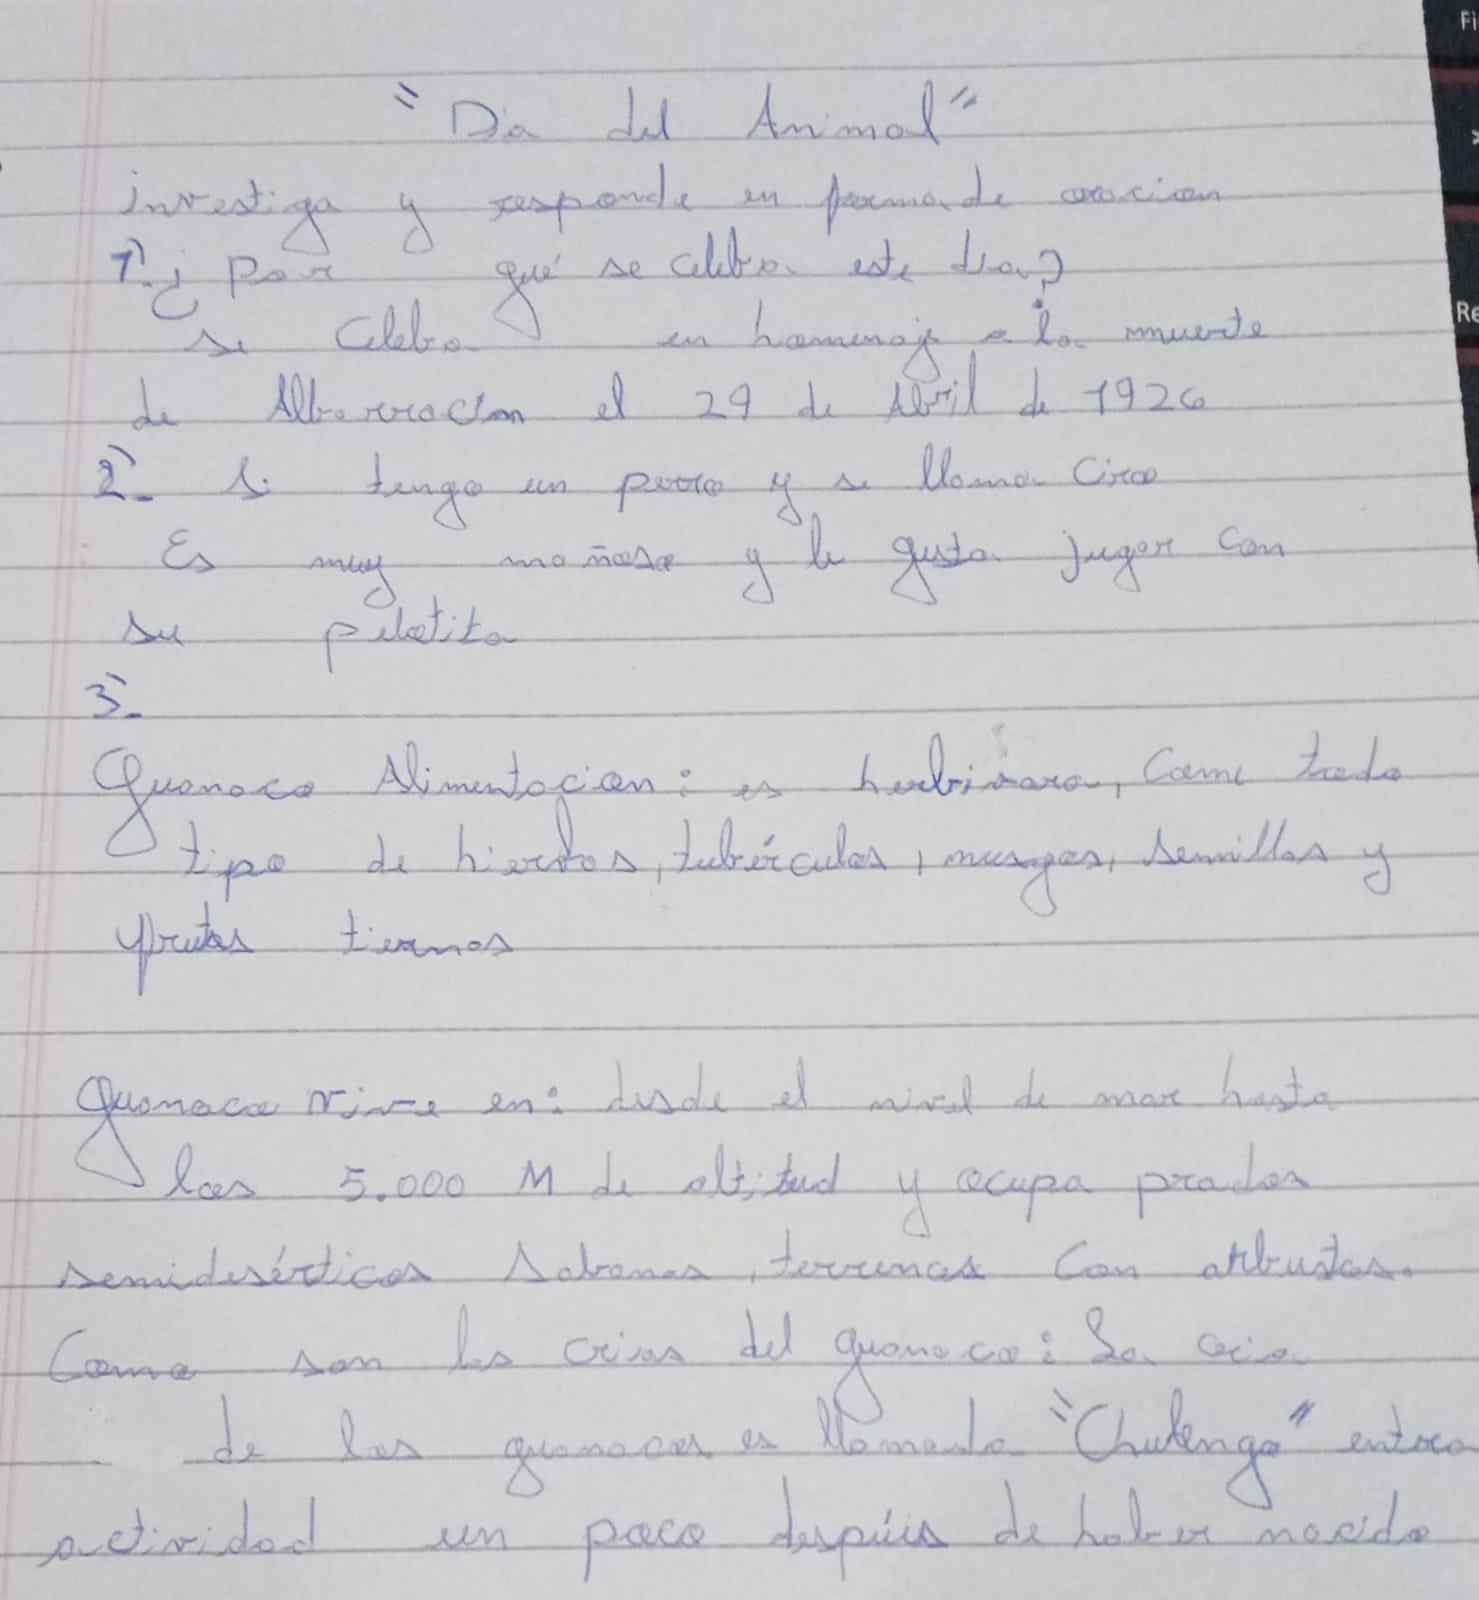 "Dia del Animal"
investiga y responde en forma de oracion
1º. ¿por qué se celebra este dia?
se Celebra en homenaje a la muerte
de Albarracin el 29 de Abril de 1926
2º. Si tengo un perro y se llama Ciro
Es muy mañoso y le gusta jugar con
su pelotita
3º.
Guanaco Alimentacion: es herbivoro, Come todo
tipo de hierbas, tubérculos, musgos, semillas y
frutas tiernas
Guanaco vive en: desde el nivel de mar hasta
los 5.000 M de altitud y ocupa prados
semidesérticos Sabanas, terrenos Con arbustos.
Como son las crias del guanaco: La cria
de los guanacos es llamada "Chulengo" entra
actividad un poco despúes de haber nacido